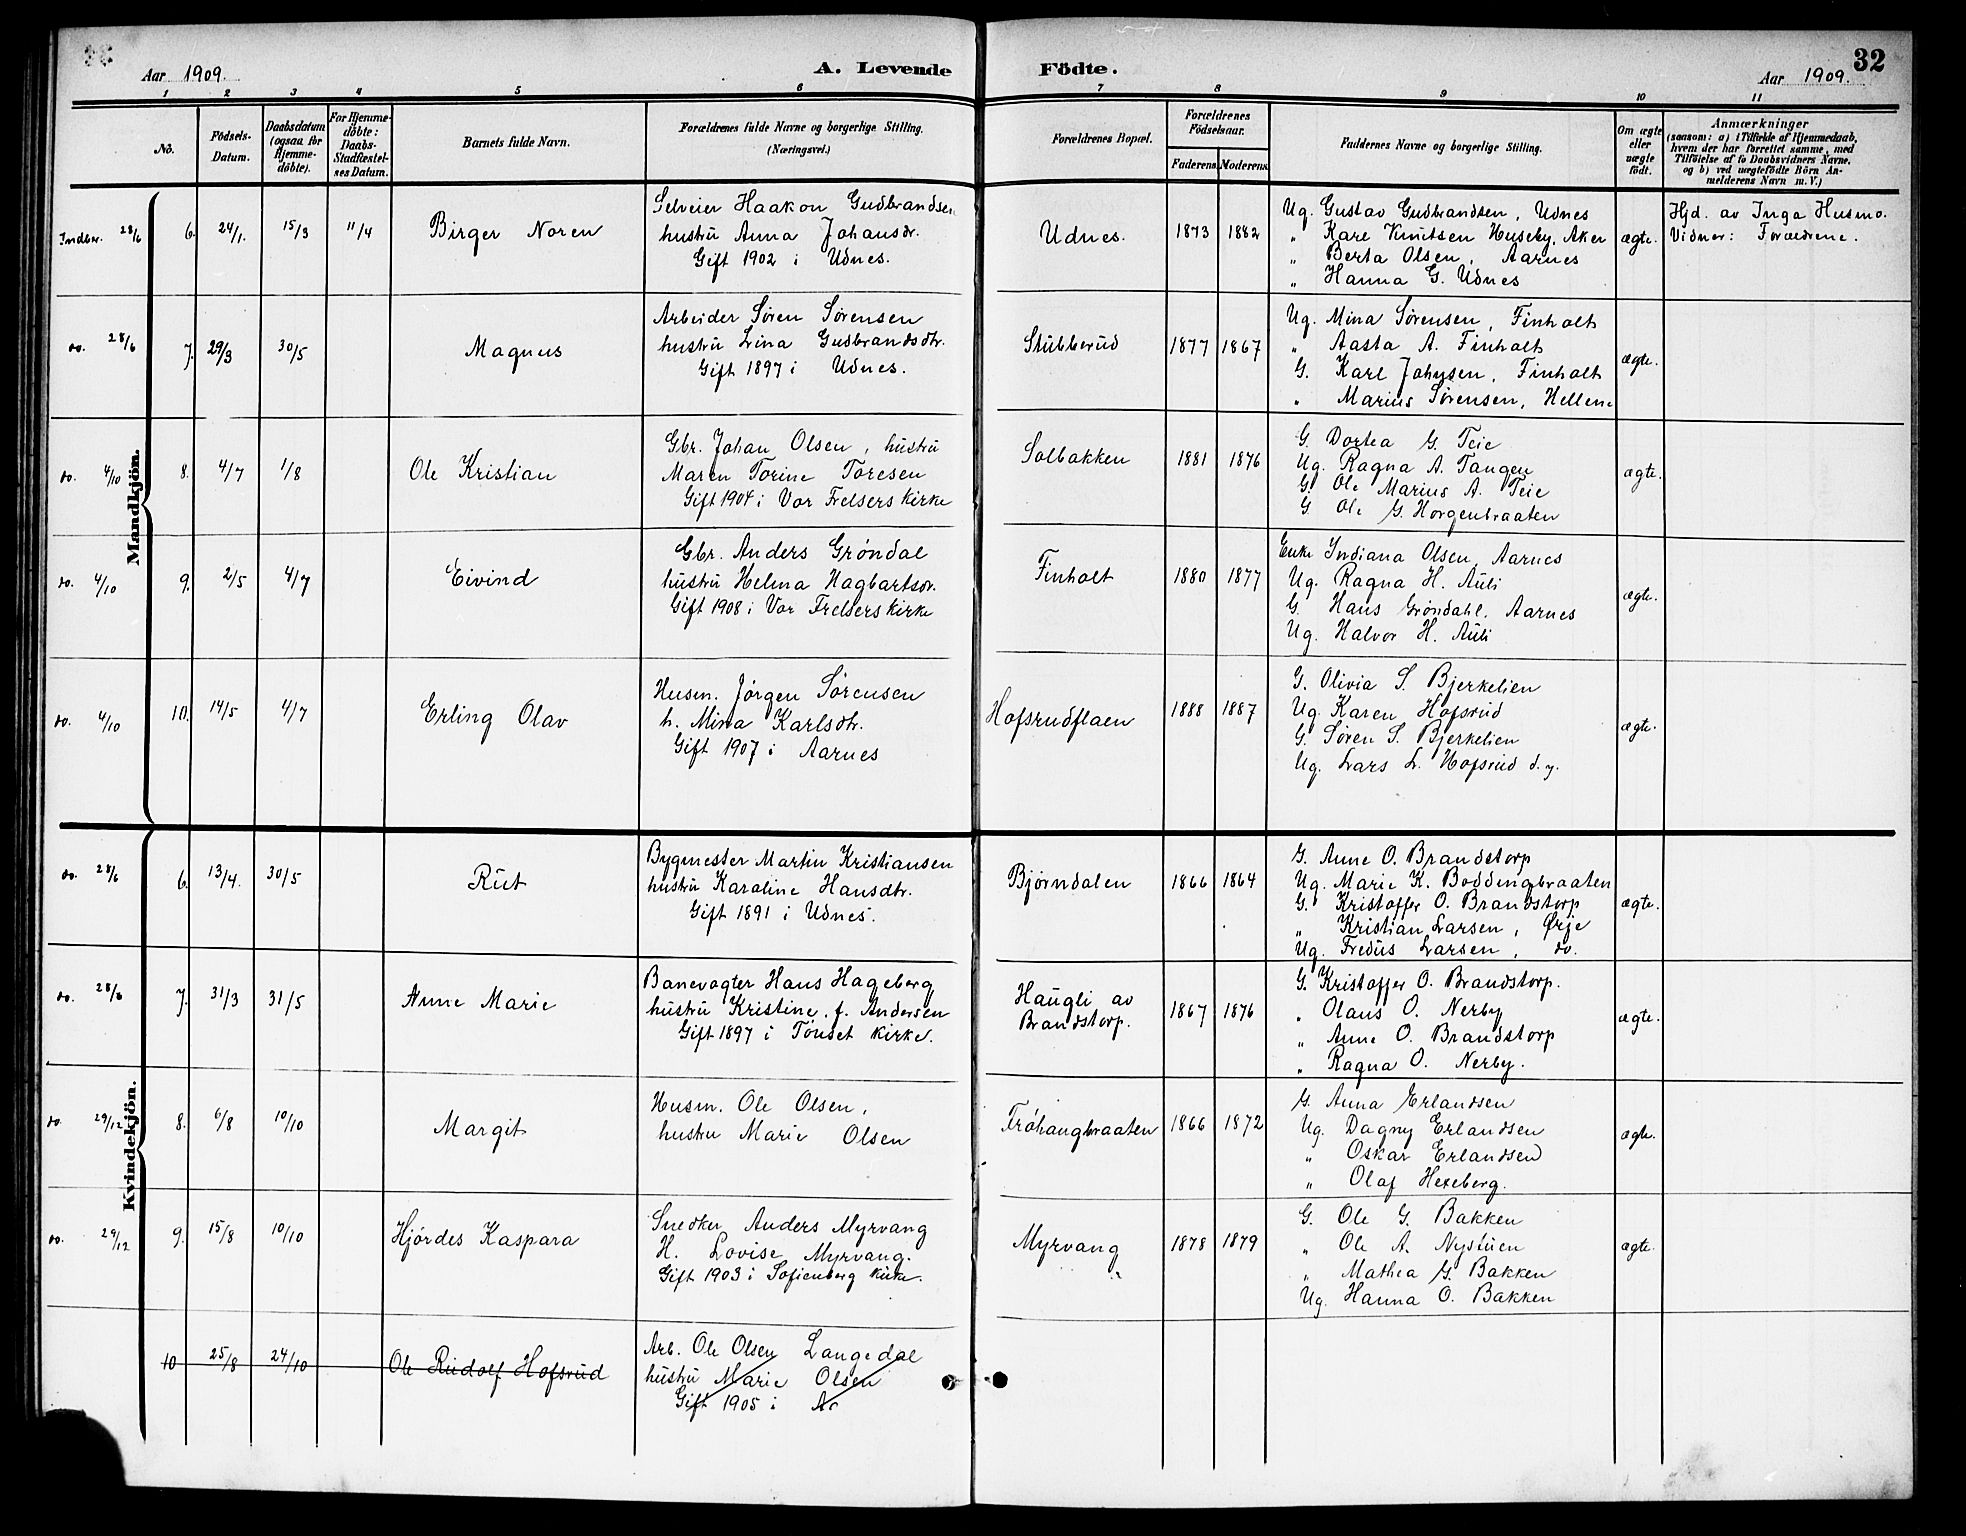 Aar 1909.
A. Levende Födte.
Aar 1909.
32
1 2 3 4 5 6 7 8 9 10 11
No.
Födsels-Datum.
Daabsdatum (ogsaa for Hjemme-döbte).
For Hjemme-döbte: Daabs-Stadfæstel-ses Datum.
Barnets fulde Navn.
Forældrenes fulde Navne og borgerlige Stilling.
(Næringsvei.)
Forældrenes Bopæl.
Forældrenes Födselsaar.
Faderens. Moderens.
Faddernes Navne og borgerlige Stilling.
Om ægte eller uægte födt.
Anmærkninger
(saasom: a) i Tilfælde af Hjemmedaab,
hvem der har forrettet samme, med
Tilföielse af to Daabsvidners Navne,
og b) ved uægtefödte Börn An-
melderens Navn m. V.)
Mandkjön.
Indber. 28/6 6. 24/1. 15/3 11/4 Birger Noren
Selveier Haakon Gudbrandsen
hustru Anna Johansdr.
Gift 1902 i Udnes.
Udnes. 1873 1882
Ug. Gustav Gudbrandsen, Udnes
„ Karl Knutsen Huseby, Aker
„ Berta Olsen, Aarnes
„ Hanna G. Udnes
ægte.
Hjd. av Inga Husmo.
Vidner: Forældrene.
do. 28/6 7. 29/3 30/5 Magnus
Arbeider Søren Sørensen
hustru Lina Gudbrandsdtr.
Gift 1897 i Udnes.
Stubberud 1877 1867
Ug. Mina Sørensen, Finholt
„ Aasta A. Finholt
G. Karl Johnsen, Finholt
„ Marius Sørensen, Hellene
ægte.
do. 4/10 8. 4/7 1/8 Ole Kristian
Gbr. Johan Olsen, hustru
Maren Torine Toresen
Gift 1904 i Vor Frelsers kirke
Solbakken 1881 1876
G. Dortea G. Teie
Ug. Ragna A. Tangen
G. Ole Marius A. Teie
G. Ole G. Horgenbraaten
ægte.
do. 4/10 9. 2/5 4/7 Eivind
Gbr. Anders Grøndal
hustru Helma Hagbartsdr.
Gift 1908 i Vor Frelsers kirke
Finholt 1880 1877
Enke Indiana Olsen, Aarnes
Ug. Ragna H. Auli
G. Hans Grøndahl, Aarnes
Ug. Halvor H. Auli
ægte.
do. 4/10 10. 14/5 4/7 Erling Olav
Husm. Jørgen Sørensen
h. Mina Karlsdtr.
Gift 1907 i Aarnes
Hofsrudflaen 1888 1887
G. Olivia S. Bjerkelien
Ug. Karen Hofsrud
G. Søren S. Bjerkelien
Ug. Lars L. Hofsrud d.y.
ægte.
Kvindekjön.
do. 28/6 6. 13/4. 30/5 Rut
Bygmester Martin Kristiansen
hustru Karoline Hansdtr.
Gift 1891 i Udnes.
Bjørndalen 1866 1864
G. Anne O. Brandstorp
Ug. Marie K. Boddingbraaten
G. Kristoffer O. Brandstorp
„ Kristian Larsen, Ørje
Ug. Fredus Larsen, do.
ægte.
do. 28/6 7. 31/3 31/5 Anne Marie
Banevogter Hans Hageberg
hustru Kristine, f. Andersen
Gift 1897 i Tønset kirke.
Haugli av Brandstorp. 1867 1876
G. Kristoffer O. Brandstorp.
„ Olaus O. Nerby
„ Anne O. Brandstorp
„ Ragna O. Nerby.
ægte.
do. 29/12 8. 6/8 10/10 Margit
Husm. Ole Olsen,
hustru Marie Olsen
Frøhaugbraaten 1866 1872
G. Anna Erlandsen
Ug. Dagny Erlandsen
„ Oskar Erlandsen
„ Olaf Hexeberg.
ægte.
do. 29/12 9. 15/8 10/10 Hjørdes Kaspara
Snedker Anders Myrvang
H. Lovise Myrvang.
Gift 1903 i Sofienberg kirke.
Myrvang 1878 1879
G. Ole G. Bakken
„ Ole A. Nystuen
„ Mathea G. Bakken
Ug. Hanna O. Bakken
ægte.
10 25/8 24/10 Ole Rudolf Hofsrud
Arb. Ole Olsen Langedal
hustru Marie Olsen
Gift 1905 i Aa